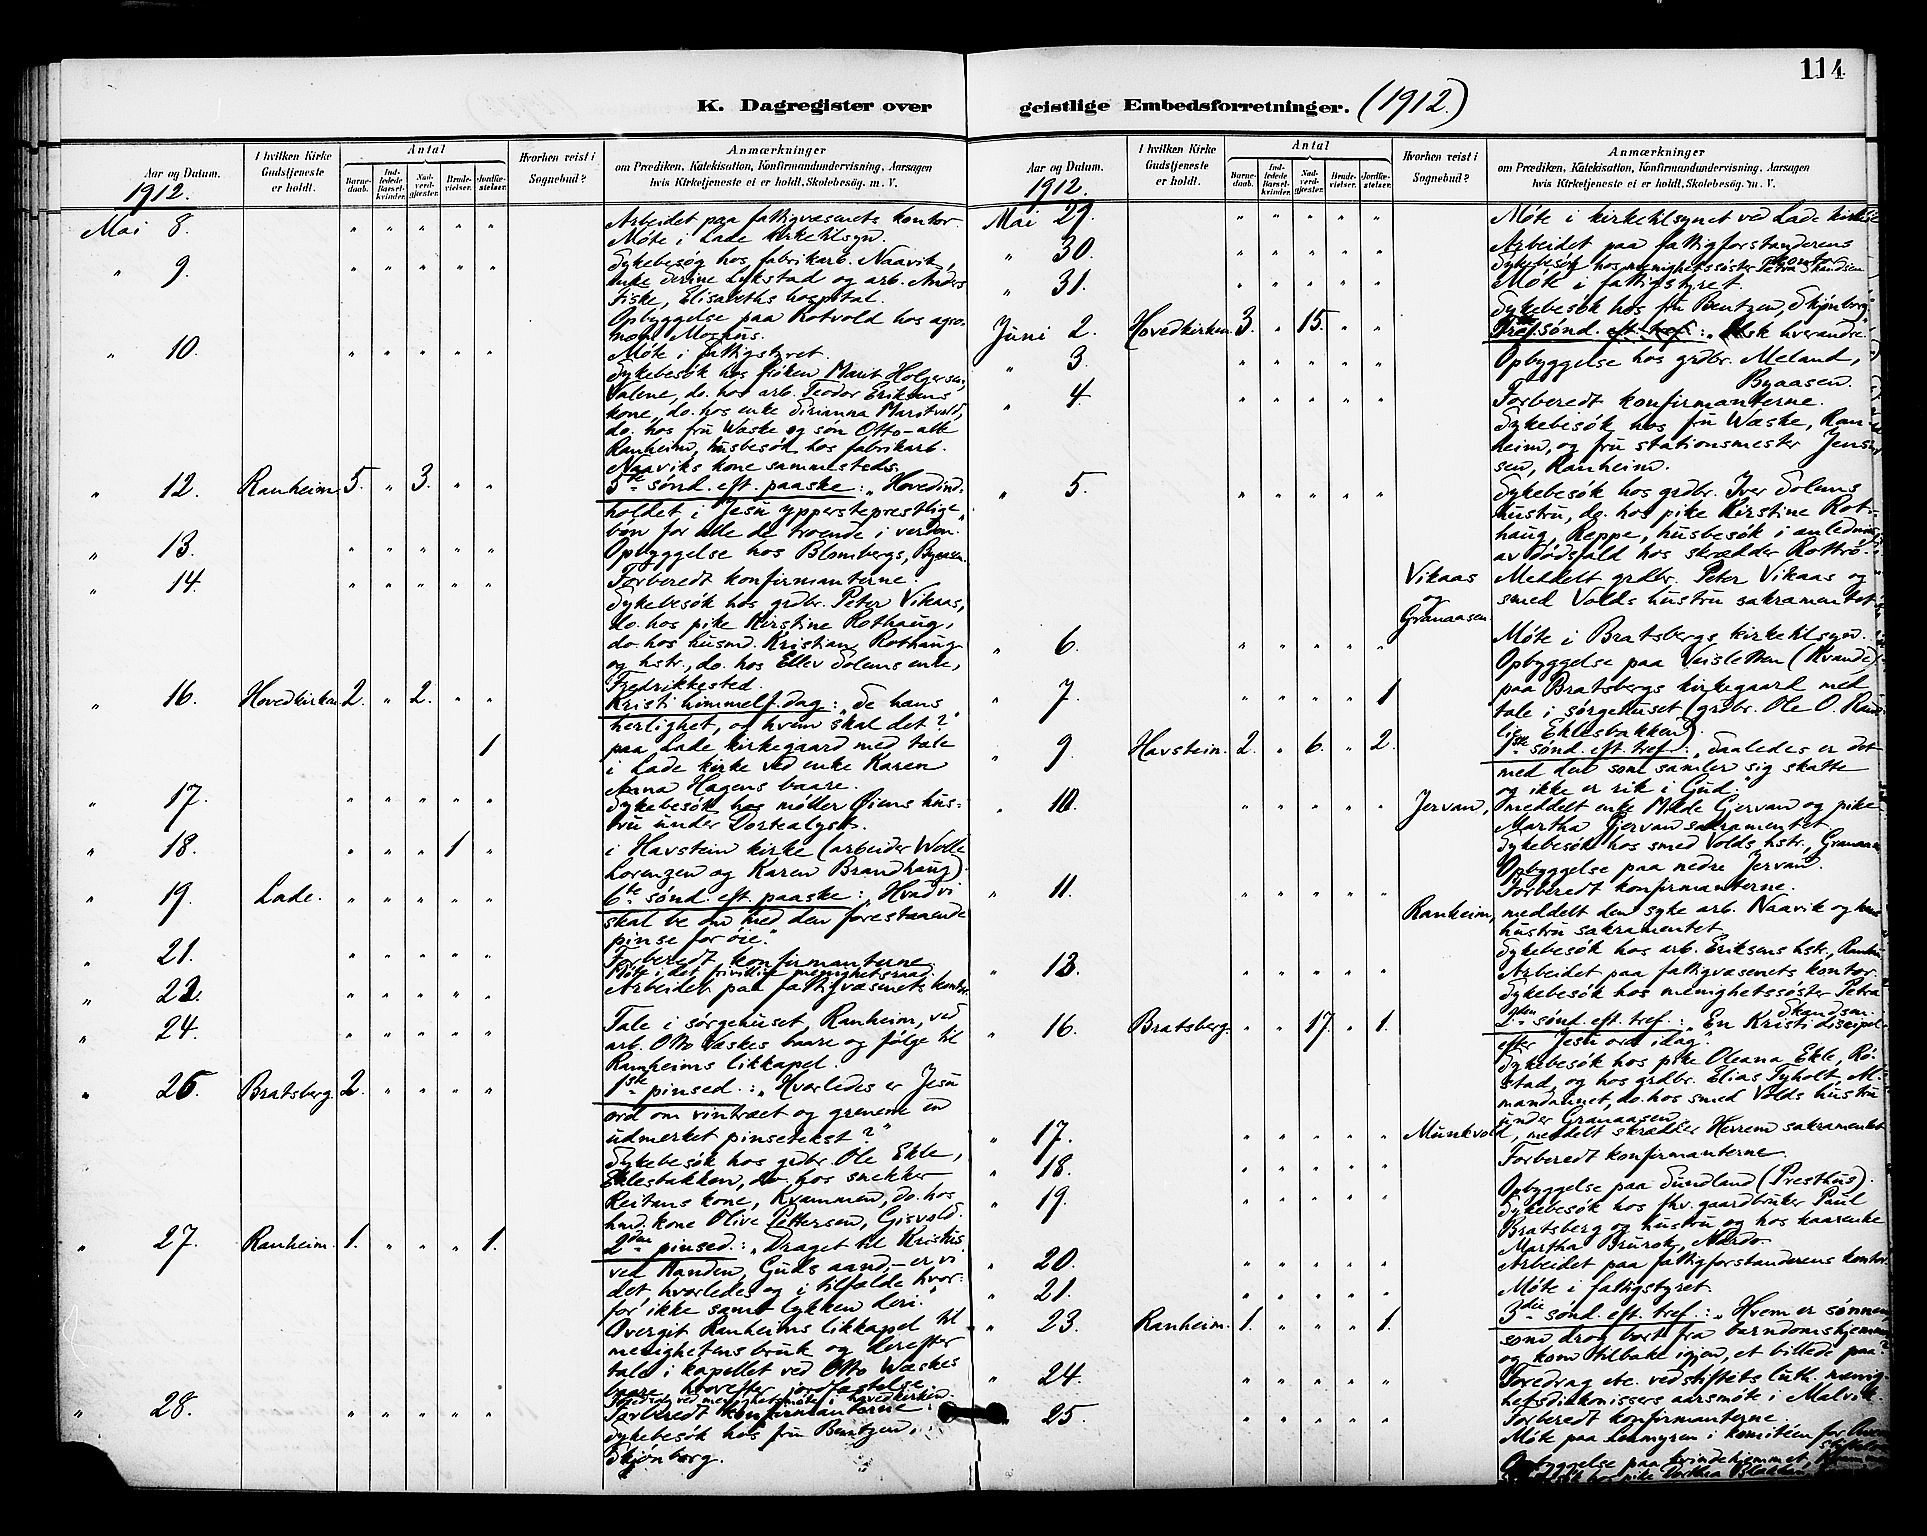 114
K. Dagregister over
geistlige Embedsforretninger. (1912.)
Aar og Datum.
1912.
I hvilken Kirke Gudstjeneste er holdt.
Antal
Barnedaab.
Indledede Barselkvinder.
Nadverdgjester.
Brudevielser.
Jordfæstelser.
Hvorhen reist i Sognebud?
Anmærkninger
om Prædiken, Katekisation, Konfirmandundervisning, Aarsagen
hvis Kirketjeneste ei er holdt, Skolebesøg. m. V.
Mai 8. " " " " " Arbeidet paa fattigvæsenets kontor.
Møte i Lade kirketilsyn.
" 9. " " " " " Sykebesøg hos fabrikarb. Naavik,
enke Serine Lykstad og arb. Anders
Fiske, Elisabeths hospital.
Opbyggelse paa Rotvold hos agro-
nom Morhus.
" 10. " " " " " Møte i fattigstyret.
Sykebesøk hos frøken Marit Holgersen,
Valene, do. hos arb. Teodor Eriksens
kone, do. hos enke Sirianna Maritvold,
do. hos fru Wæske og søn Otto – alle
Ranheim, husbesøk hos fabrikarb.
Naaviks kone sammesteds.
" 12. Ranheim. 5. " 3. " " 5te sønd. eft. paaske: "Hovedind-
holdet i Jesu yppersteprestelige
bøn for alle de troende i verden."
" 13. " " " " " Opbyggelse hos Blombergs, Byaasen.
" 14. " " " " " Forberedt konfirmanterne.
Sykebesøk hos grdbr. Peter Vikaas,
do. hos pike Kirstine Rothaug,
do. hos husmd. Kristian Rothaug
og hstr., do. hos Ellev Solems enke,
Fredrikkested.
" 16. Hovedkirken 2. " 2. " " Kristi himmelf. dag: "Se hans
herlighet, og hvem skal det?"
1 paa Lade kirkegaard med tale
i Lade kirke ved enke Karen
Anna Hagens baare.
" 17. " " " " " Sykebesøk hos møller Øiens hus-
tru under Dortealyst.
" 18. " " " 1 " i Havstein kirke (arbeider Wolle
Lorenzen og Karen Brandhaug).
" 19. Lade. " " " " " 6te sønd. eft. paaske: "Hvad vi
skal be om med den forestaaende
pinse for øie."
" 21. " " " " " Forberedt konfirmanterne.
Møte i det frivillige menighetsraad.
" 22. " " " " " Arbeidet paa fattigvæsenets kontor.
" 24. " " " " " Tale i sørgehuset, Ranheim, ved
arb. Otto Wæskes baare og følge til
Ranheims likkapel.
" 26. Bratsberg. 2. " " " " 1ste pinsed.: "Hvorledes er Jesu
ord om vintræet og grenene en
udmerket pinsetekst?"
Sykebesøk hos grdbr. Ole Ekle,
Eklesbakken, do. hos snekker
Reitans kone, Kvammen, do. hos
hmd. kone Olive Pettersen, Gisvold.
" 27. Ranheim. 1. " " " 1. 2den pinsed.: "Draget til Kristus
ved Aanden, Guds aand, – er vi
det, hvorledes og i tilfælde hvor-
for ikke samt lykken deri."
Overgit Ranheims likkapel til
menighetens bruk og derefter
tale i kapellet ved Otto Wæskes
baare, hvorefter jordfæstelse.
Foredrag ved menighetsmøte i hovedkirken.
" 28. " " " " " Forberedt konfirmanterne.
Sykebesøk hos fru Bentzen,
Skjønborg.
Aar og Datum.
1912.
I hvilken Kirke Gudstjeneste er holdt.
Antal
Barnedaab.
Indledede Barselkvinder.
Nadverdgjester.
Brudevielser.
Jordfæstelser.
Hvorhen reist i Sognebud?
Anmærkninger
om Prædiken, Katekisation, Konfirmandundervisning, Aarsagen
hvis Kirketjeneste ei er holdt, Skolebesøg. m. V.
Mai 29. " " " " " Møte i kirketilsynet ved Lade kirke
" 30. " " " " " Arbeidet paa fattigforstanderens
kontor.
Sykebesøk hos menighetssøster Petra Skandsen
" 31. " " " " " Møte i fattigstyret.
Sykebesøk hos fru Bentzen, Skjønborg.
Juni 2. Hovedkirken 3. " 15. " " sønd. eft. tref.: "Elsk hverandre.
" 3. " " " " " Opbyggelse hos grdbr. Meland,
Byaasen.
" 4. " " " " " Forberedt konfirmanterne.
Sykebesøk hos fru Wæske, Ran-
heim, og fru stationsmester Jen-
sen, Ranheim.
" 5. " " " " " Sykebesøk hos grdbr. Iver Solems
hustru, do. hos pike Kirstine Rot-
haug, Reppe, husbesøk i anledning
av dødsfald hos skrædder Rottrø.
Vikaas og Granaasen Meddelt grdbr. Peter Vikaas og
smed Volds hustru sakramentet.
" 6. " " " " " Møte i Bratsbergs kirketilsyn.
Opbyggelse paa Veisletten (Kvande).
" 7. " " " " 1 paa Bratsbergs kirkegaard med
tale i sørgehuset (grdbr. Ole O. Rand-
lie, Eklesbakken).
" 9. Havstein. 2. " 6. " 2. 1ste sønd. eft. tref.: "Saaledes er det
med den som samler sig skatte
og ikke er rik i Gud."
" 10. " " " " " Jervan, meddelt enke Gjervan og pike
Martha Gjervan sakramentet.
Sykebesøk hos smed Volds hstr., Granaasen
Opbyggelse paa nedre Jervan.
" 11. " " " " " Forberedt konfirmanterne.
Ranheim, meddelt den syke arb. Naavik og hans
hustru sakramentet.
Sykebesøk hos arb. Eriksens hstr., Ranheim
" 13. " " " " " Arbeidet paa fattigvæsenets kontor.
Sykebesøk hos menighetssøster Petra
Skandsen.
" 16. Bratsberg. " " 17. " 1. 2den sønd. eft. tref.: "En Kristi discipel
efter Jesu ord idag."
Sykebesøk hos pike Oleana Ekle, Rø-
stad, og hos grdbr. Elias Tyholt,
do. hos smed Volds hustru
under Granaasen.
" 17. " " " " " Munkvold, meddelt skrædder Herrem sakramentet
" 18. " " " " " Forberedt konfirmanterne.
Opbyggelse paa Sundland (Presthus).
" 19. " " " " " Sykebesøk hos fhv. gaardbruker Paul
Bratsberg og hustru og hos kaarenke
Martha Brurok, Nardo.
" 20. " " " " " Arbeidet paa fattigforstanderens kontor
" 21. " " " " " Møte i fattigstyret.
" 23. Ranheim. 1. " " " 1. 3die sønd. eft. tref.: "Hvem er sønnen
som drog bort fra barndomshjemmet
og kom tilbake igjen, et billede paa?
" 24. " " " " " Foredrag etc. ved stiftets luth. menig-
hetsdiakonissers aarsmøte i Malvik.
" 25. " " " " " Forberedt konfirmanterne.
Møte paa i komitéen for
Opbyggelse paa kvindehjemmet,
hos pike Dorthea